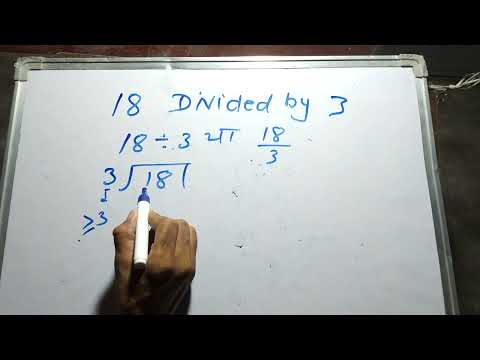 18 Divided by 3
18 ÷ 3 या 18/3
3 18
≥3